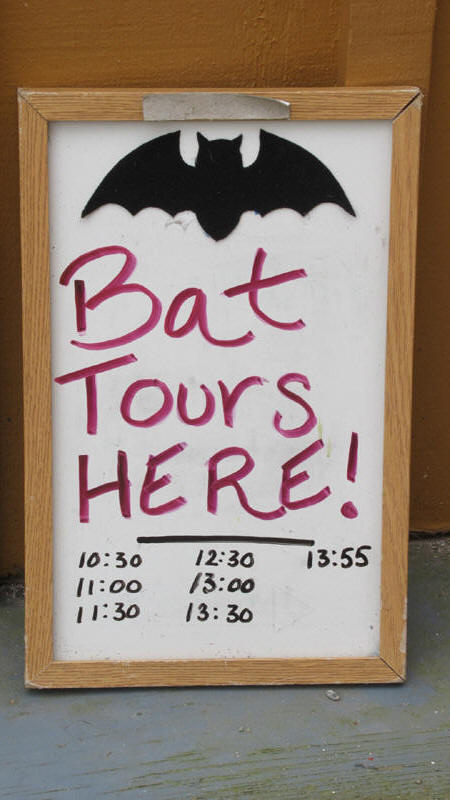 Bat
Tours
HERE!
10:30 12:30 13:55
11:00 13:00
11:30 13:30